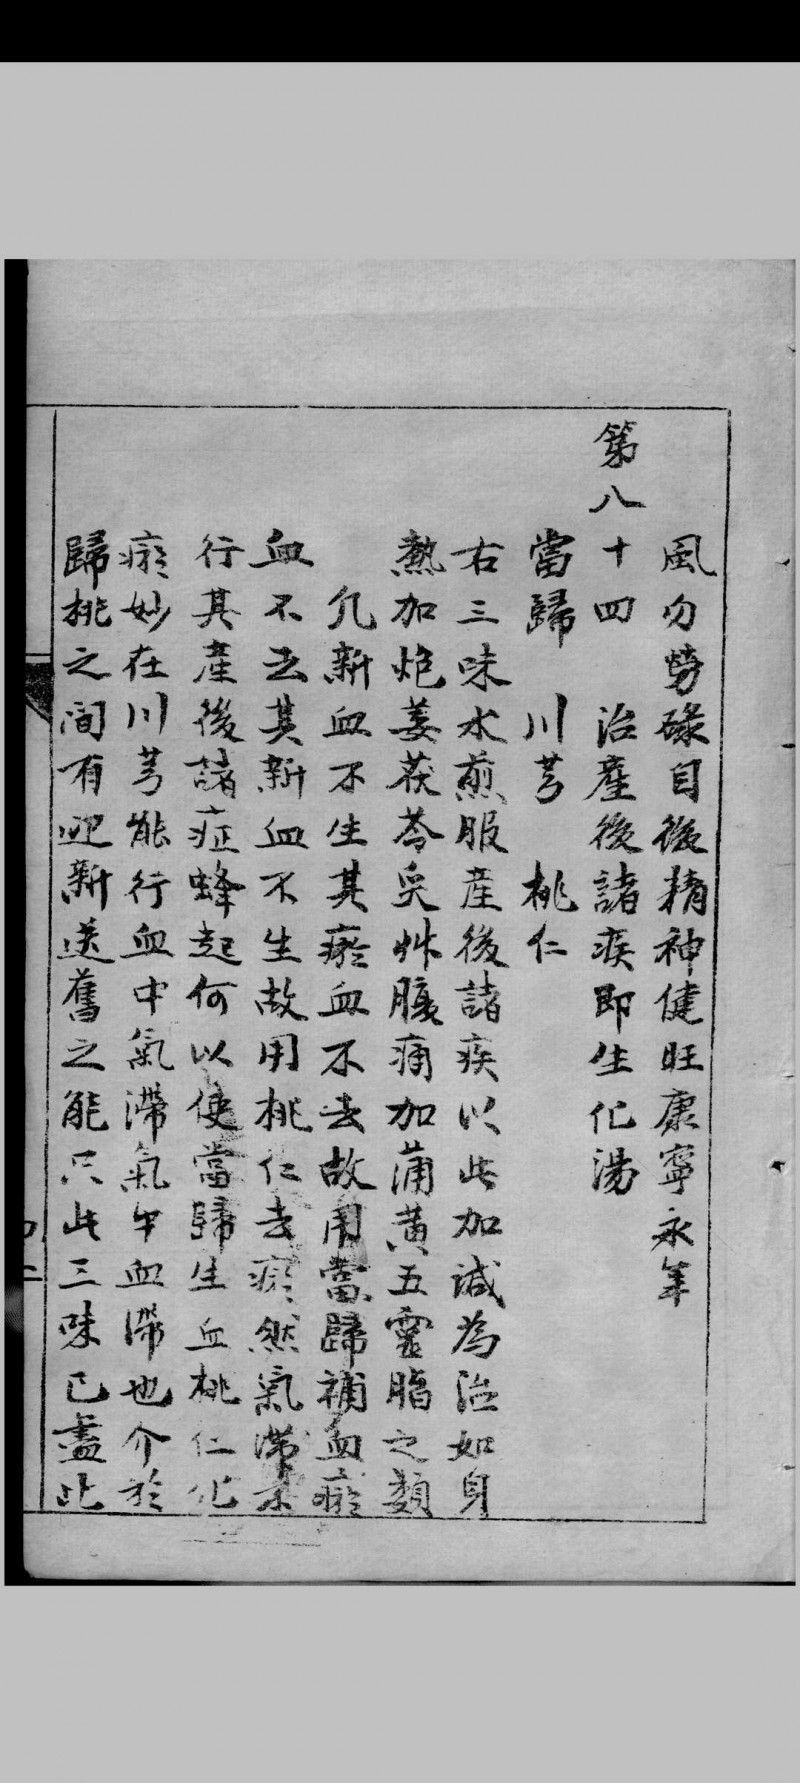 風勿勞碌自後精神健旺康寧永年
第八十四　治產後諸疾即生化湯
當歸　川芎　桃仁
右三味水煎服產後諸疾以此加減為治如身
熱加炮姜茯苓吳茱腹痛加蒲黃五靈脂之類
凡新血不生其瘀血不去故用當歸補血瘀
血不去其新血不生故用桃仁去瘀然氣滯未
行其產後諸症蜂起何以使當歸生血桃仁化
瘀妙在川芎能行血中氣滯氣血滯也介於
歸桃之間有迎新送舊之能只此三味已盡此